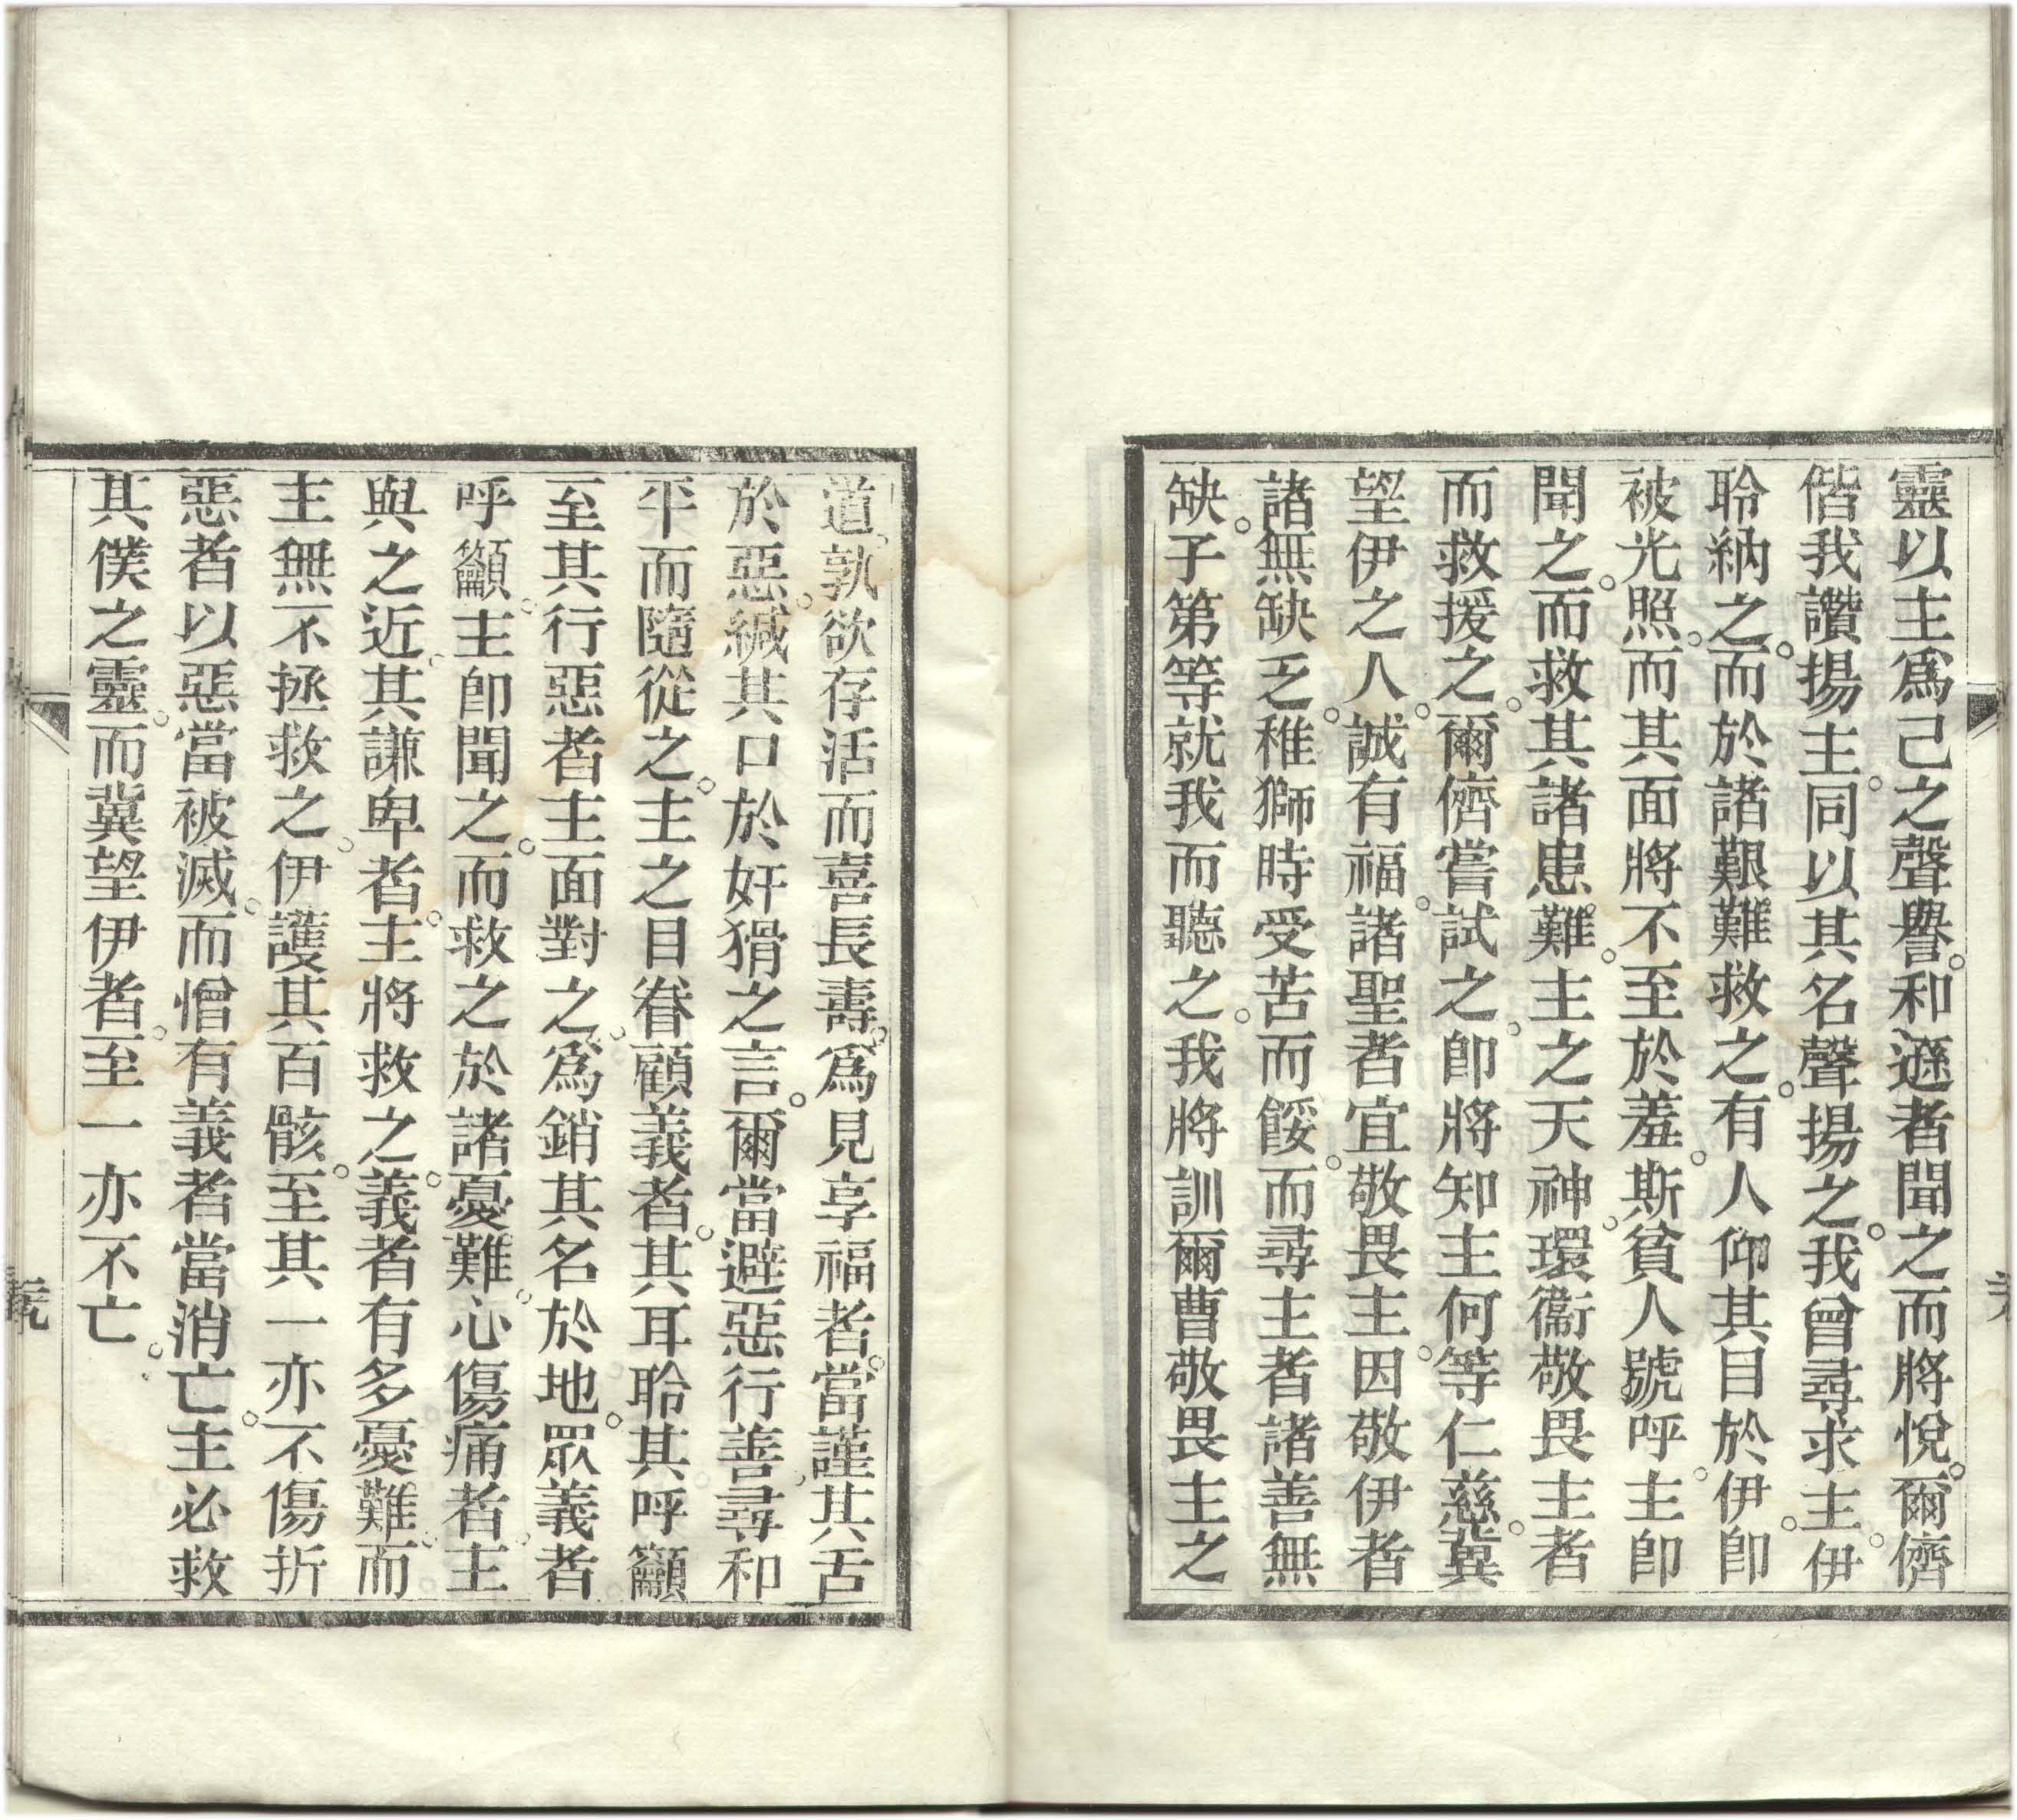 靈以主爲己之聲譽。和遜者聞之而將悅。爾儕
偕我讚揚主。同以其名聲揚之。我曾尋求主。伊
聆納之。而於諸艱難救之。有人仰其目於伊。卽
被光照。而其面將不至於羞。斯貧人號呼。主卽
聞之。而救其諸患難。主之天神。環衞敬畏主者
而救援之。爾儕嘗試之。卽將知主何等仁慈。冀
望伊之人。誠有福。諸聖者宜敬畏主。因敬伊者
諸無缺乏。稚獅時受苦而餒。而尋主者諸善無
缺。子第等就我而聽之。我將訓爾曹敬畏主之
道。孰欲存活而喜長壽。爲見享福者。當謹其舌
於惡。緘其口於奸猾之言。爾當避惡行善。尋和
平而隨從之。主之目眷顧義者。其耳聆其呼籲
至其行惡者主面對之。爲銷其名於地。眾義者
呼籲。主卽聞之。而救之於諸憂難。心傷痛者。主
與之近。其謙卑者。主將救之。義者有多憂難。而
主無不拯救之。伊護其百骸。至其一亦不傷折
惡者以惡當被滅。而憎有義者當消亡。主必救
其僕之靈。而冀望伊者。至一亦不亡。